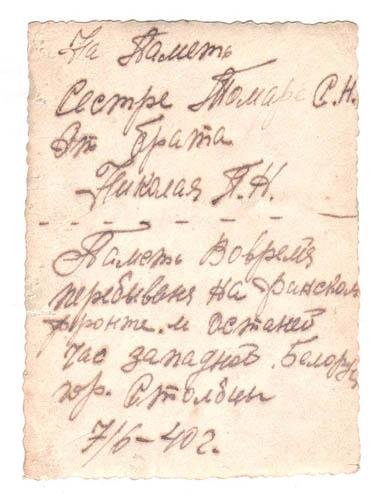 На Паметь
Сестре Томаре С.Н.
От брата
Николая П.Н.
Паметь вовремя
перебываня на финском
фронте. и останей
час западной. Белорус
гор. Столбцы
7/6-40 г.